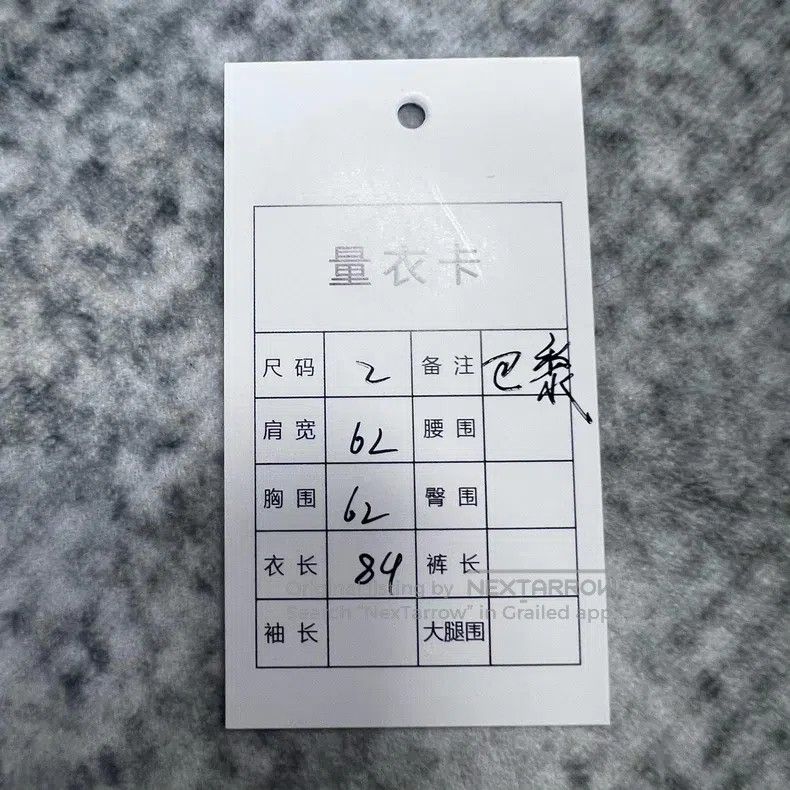 量衣卡
尺码 2 备注 巴黎
肩宽 62 腰围
胸围 62 臀围
衣长 84 裤长
Original listing by NEXTARROW
Search "NexTarrow" in Grailed app
袖长 大腿围